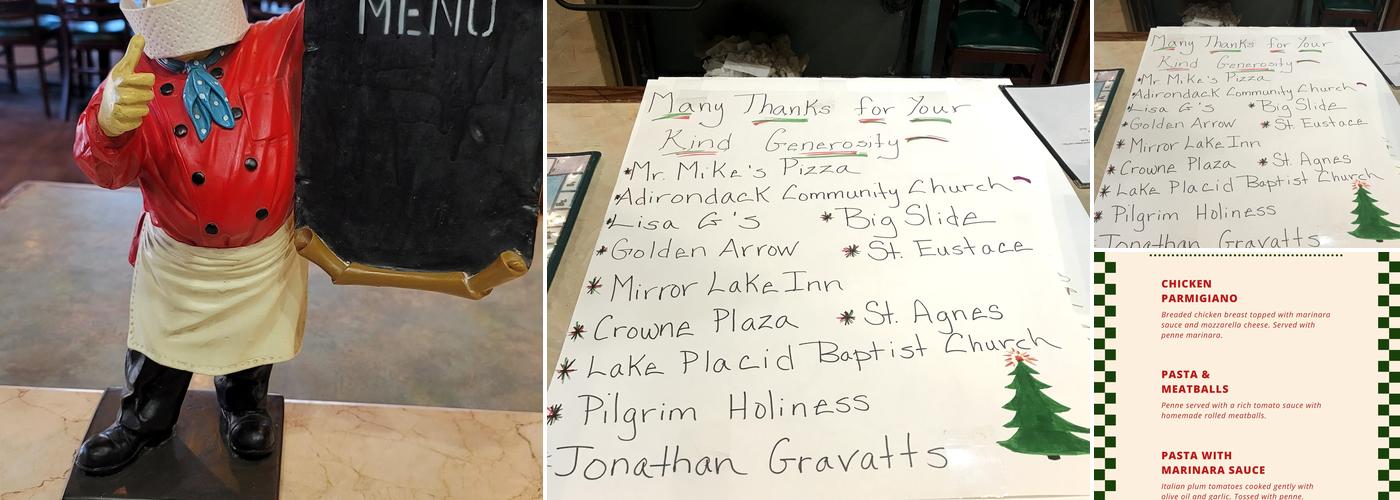 MENU
Many Thanks for Your
Kind Generosity
Mr. Mike's Pizza
Adirondack Community Church
Lisa G's * Big Slide
Golden Arrow * St. Eustace
* Mirror Lake Inn
* Crowne Plaza * St. Agnes
* Lake Placid Baptist Church
* Pilgrim Holiness
Jonathan Gravatts
Many Thanks for Your
Kind Generosity
Mr. Mike's Pizza
Adirondack Community Church
Lisa G's * Big Slide
Golden Arrow * St. Eustace
* Mirror Lake Inn
* Crowne Plaza * St. Agnes
* Lake Placid Baptist Church
* Pilgrim Holiness
Jonathan Gravatts
CHICKEN
PARMIGIANO
Breaded chicken breast topped with marinara
sauce and mozzarella cheese. Served with
penne marinara.
PASTA &
MEATBALLS
Penne served with a rich tomato sauce with
homemade rolled meatballs.
PASTA WITH
MARINARA SAUCE
Italian plum tomatoes cooked gently with
olive oil and garlic. Tossed with penne.